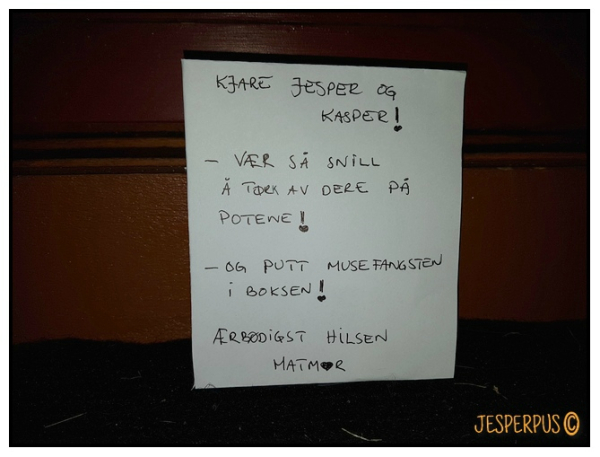 KJÆRE JESPER OG
KASPER!
- VÆR SÅ SNILL
Å TØRK AV DERE PÅ
POTENE!
- OG PUTT MUSEFANGSTEN
I BOKSEN!
ÆRBØDIGST HILSEN
MATM♥R
JESPERPUS©